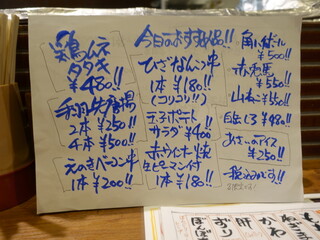 今日のおすすめ品!!
鶏ムネ
タタキ
¥480!!
手羽先唐揚
2本¥250!!
4本¥500!!
えのきベーコン串
1本¥200!!
ひざなんこつ串
1本¥180!!
(コリコリ!!)
明太子ポテト
サラダ¥400
赤ウィンナー焼
生ピーマン付
1本¥180!!
角ハイボール
¥500!!
赤兎馬
¥550!!
¥550!!
¥480!!
アイス
¥250!!
税込みです!!
肝
かわ
ずり
ぼんぼち